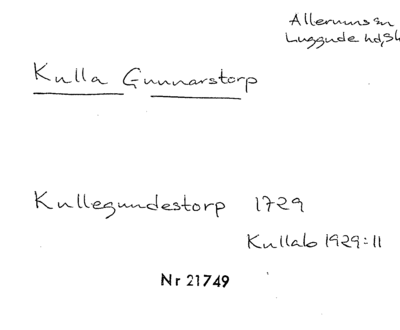 Allerums sn
Luggude hd, Sk
Kulla Gunnarstorp
Kullegundestorp 1729
Kullab 1929:11
Nr 21749